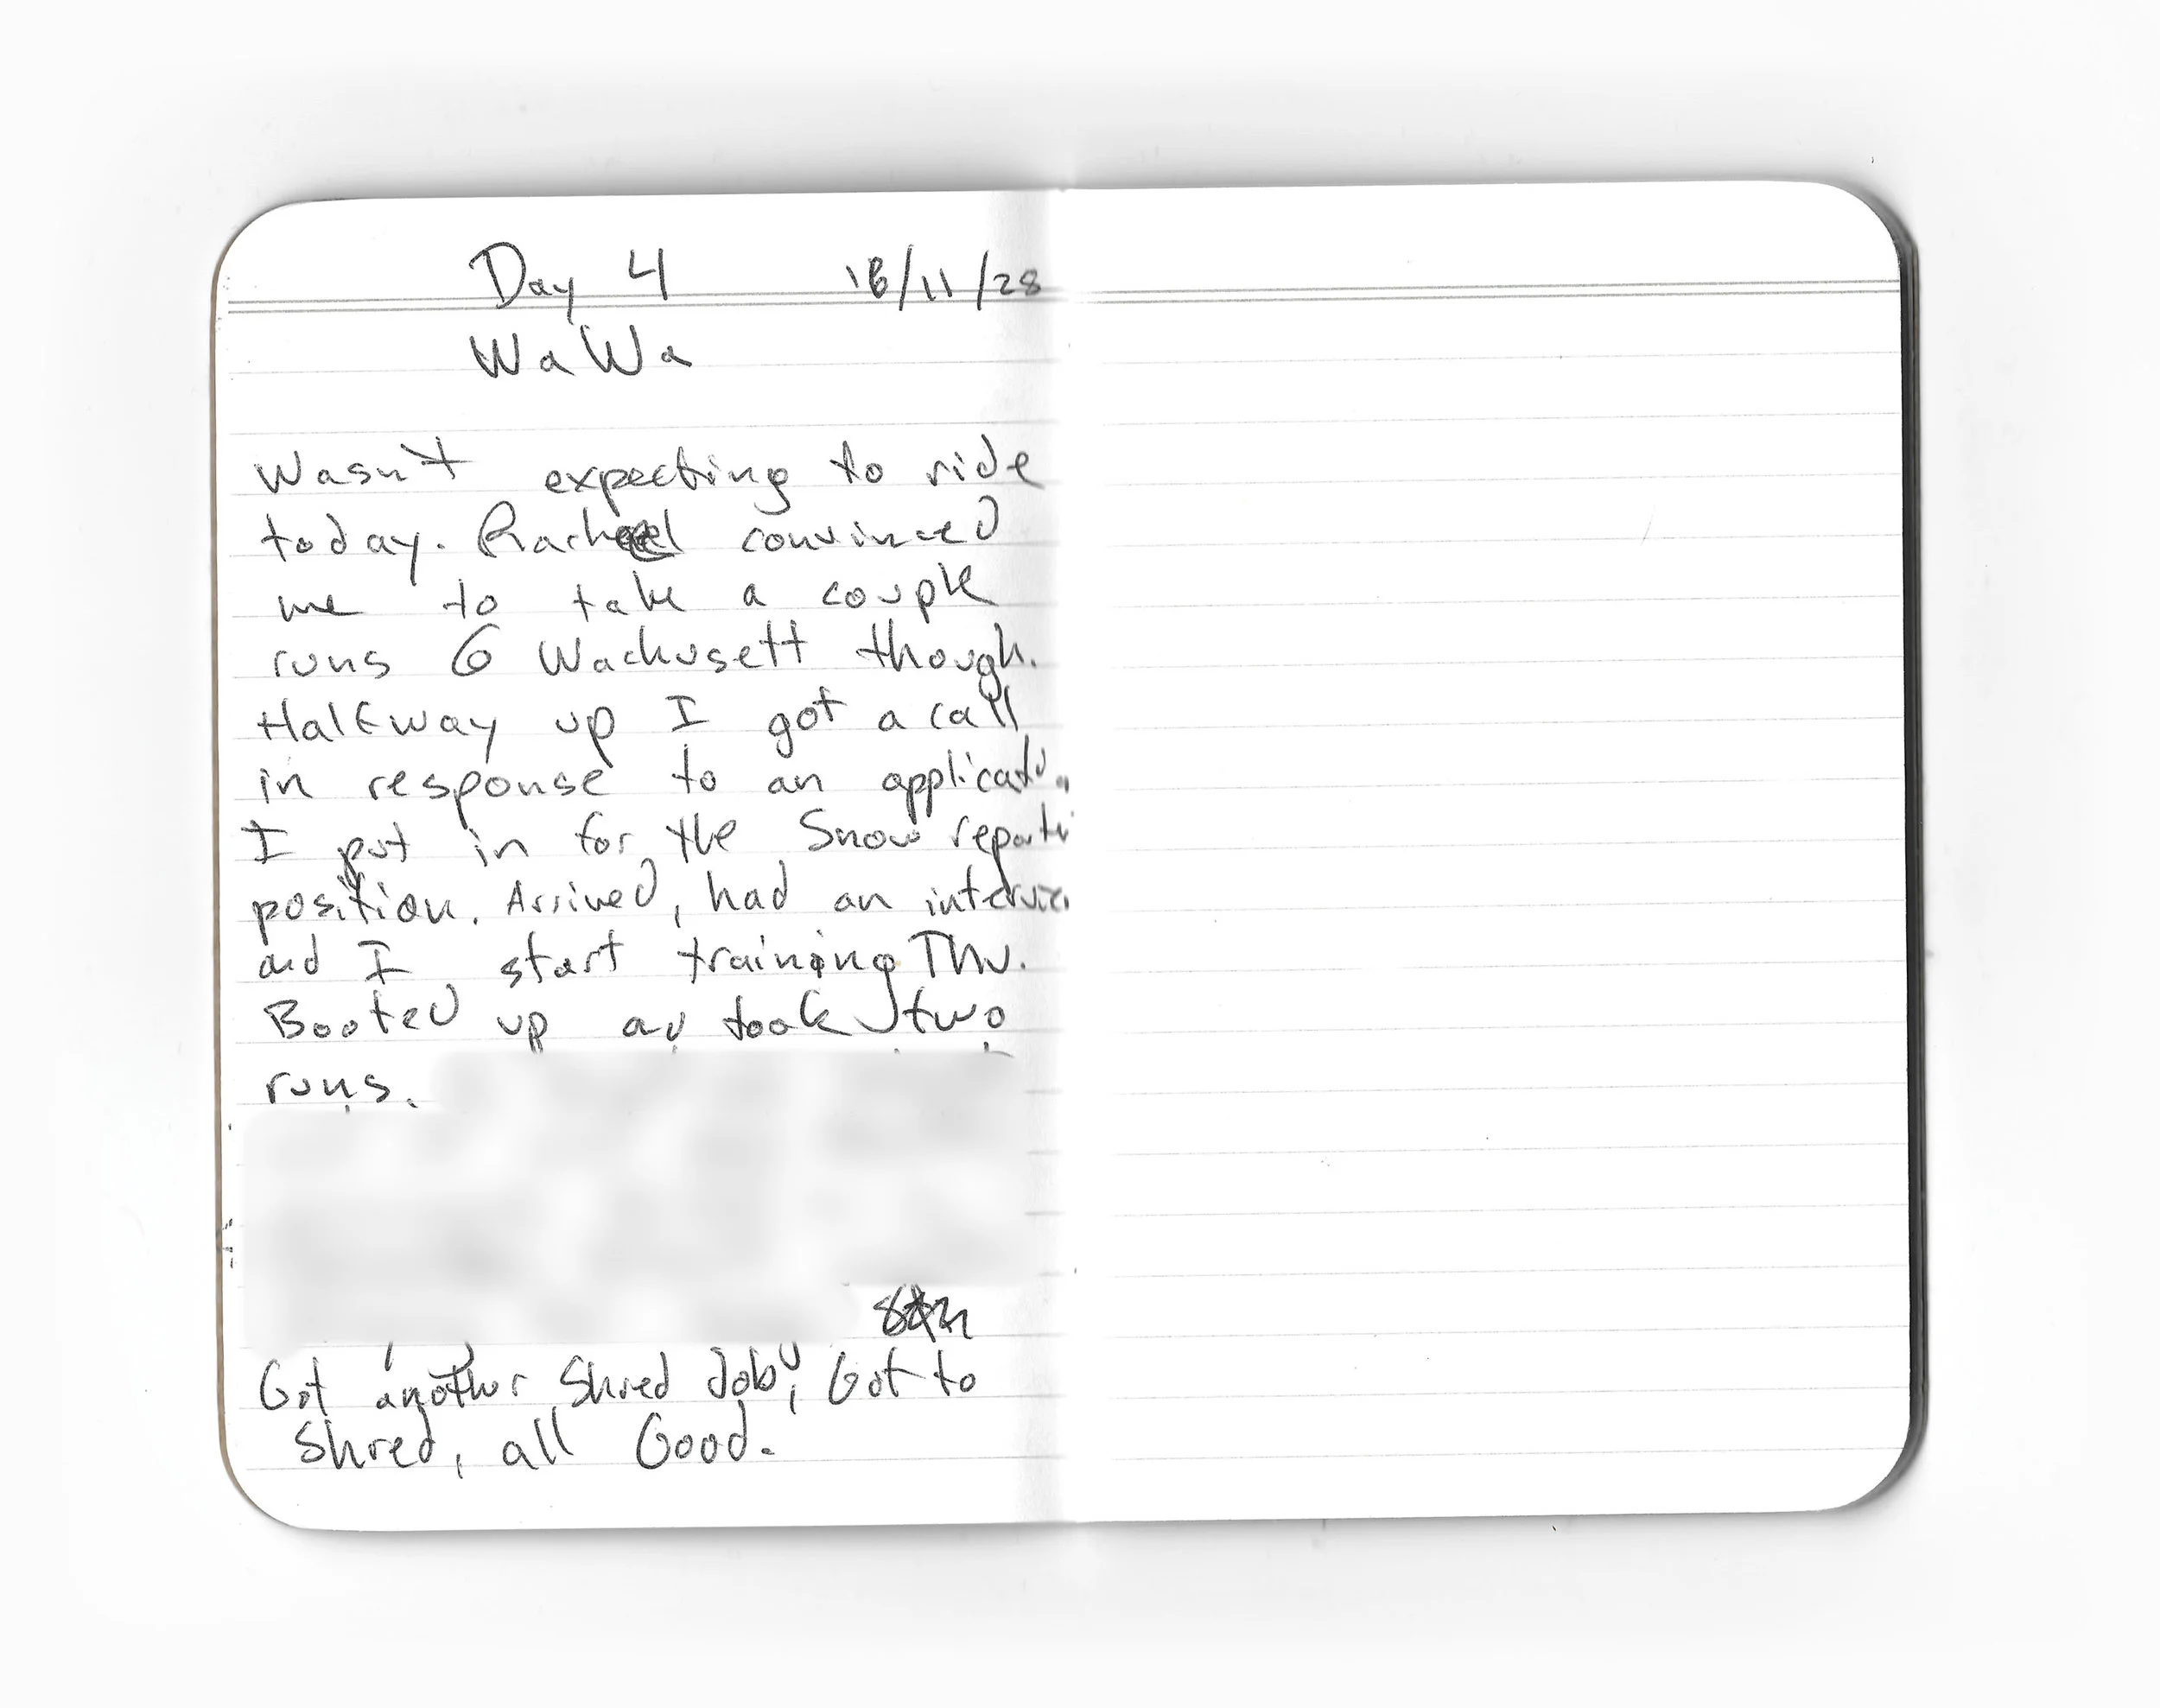 Day 4 18/11/28
WaWa
Wasn't expecting to ride
today. Rachel convinced
me to take a couple
runs @ Wachusett though.
Halfway up I got a call
in response to an
I put in for the Snow
position. Arrived, had an
and I start training Thu.
Booted up and took two
runs.
Got another Shred Job! Got to
Shred, all Good.